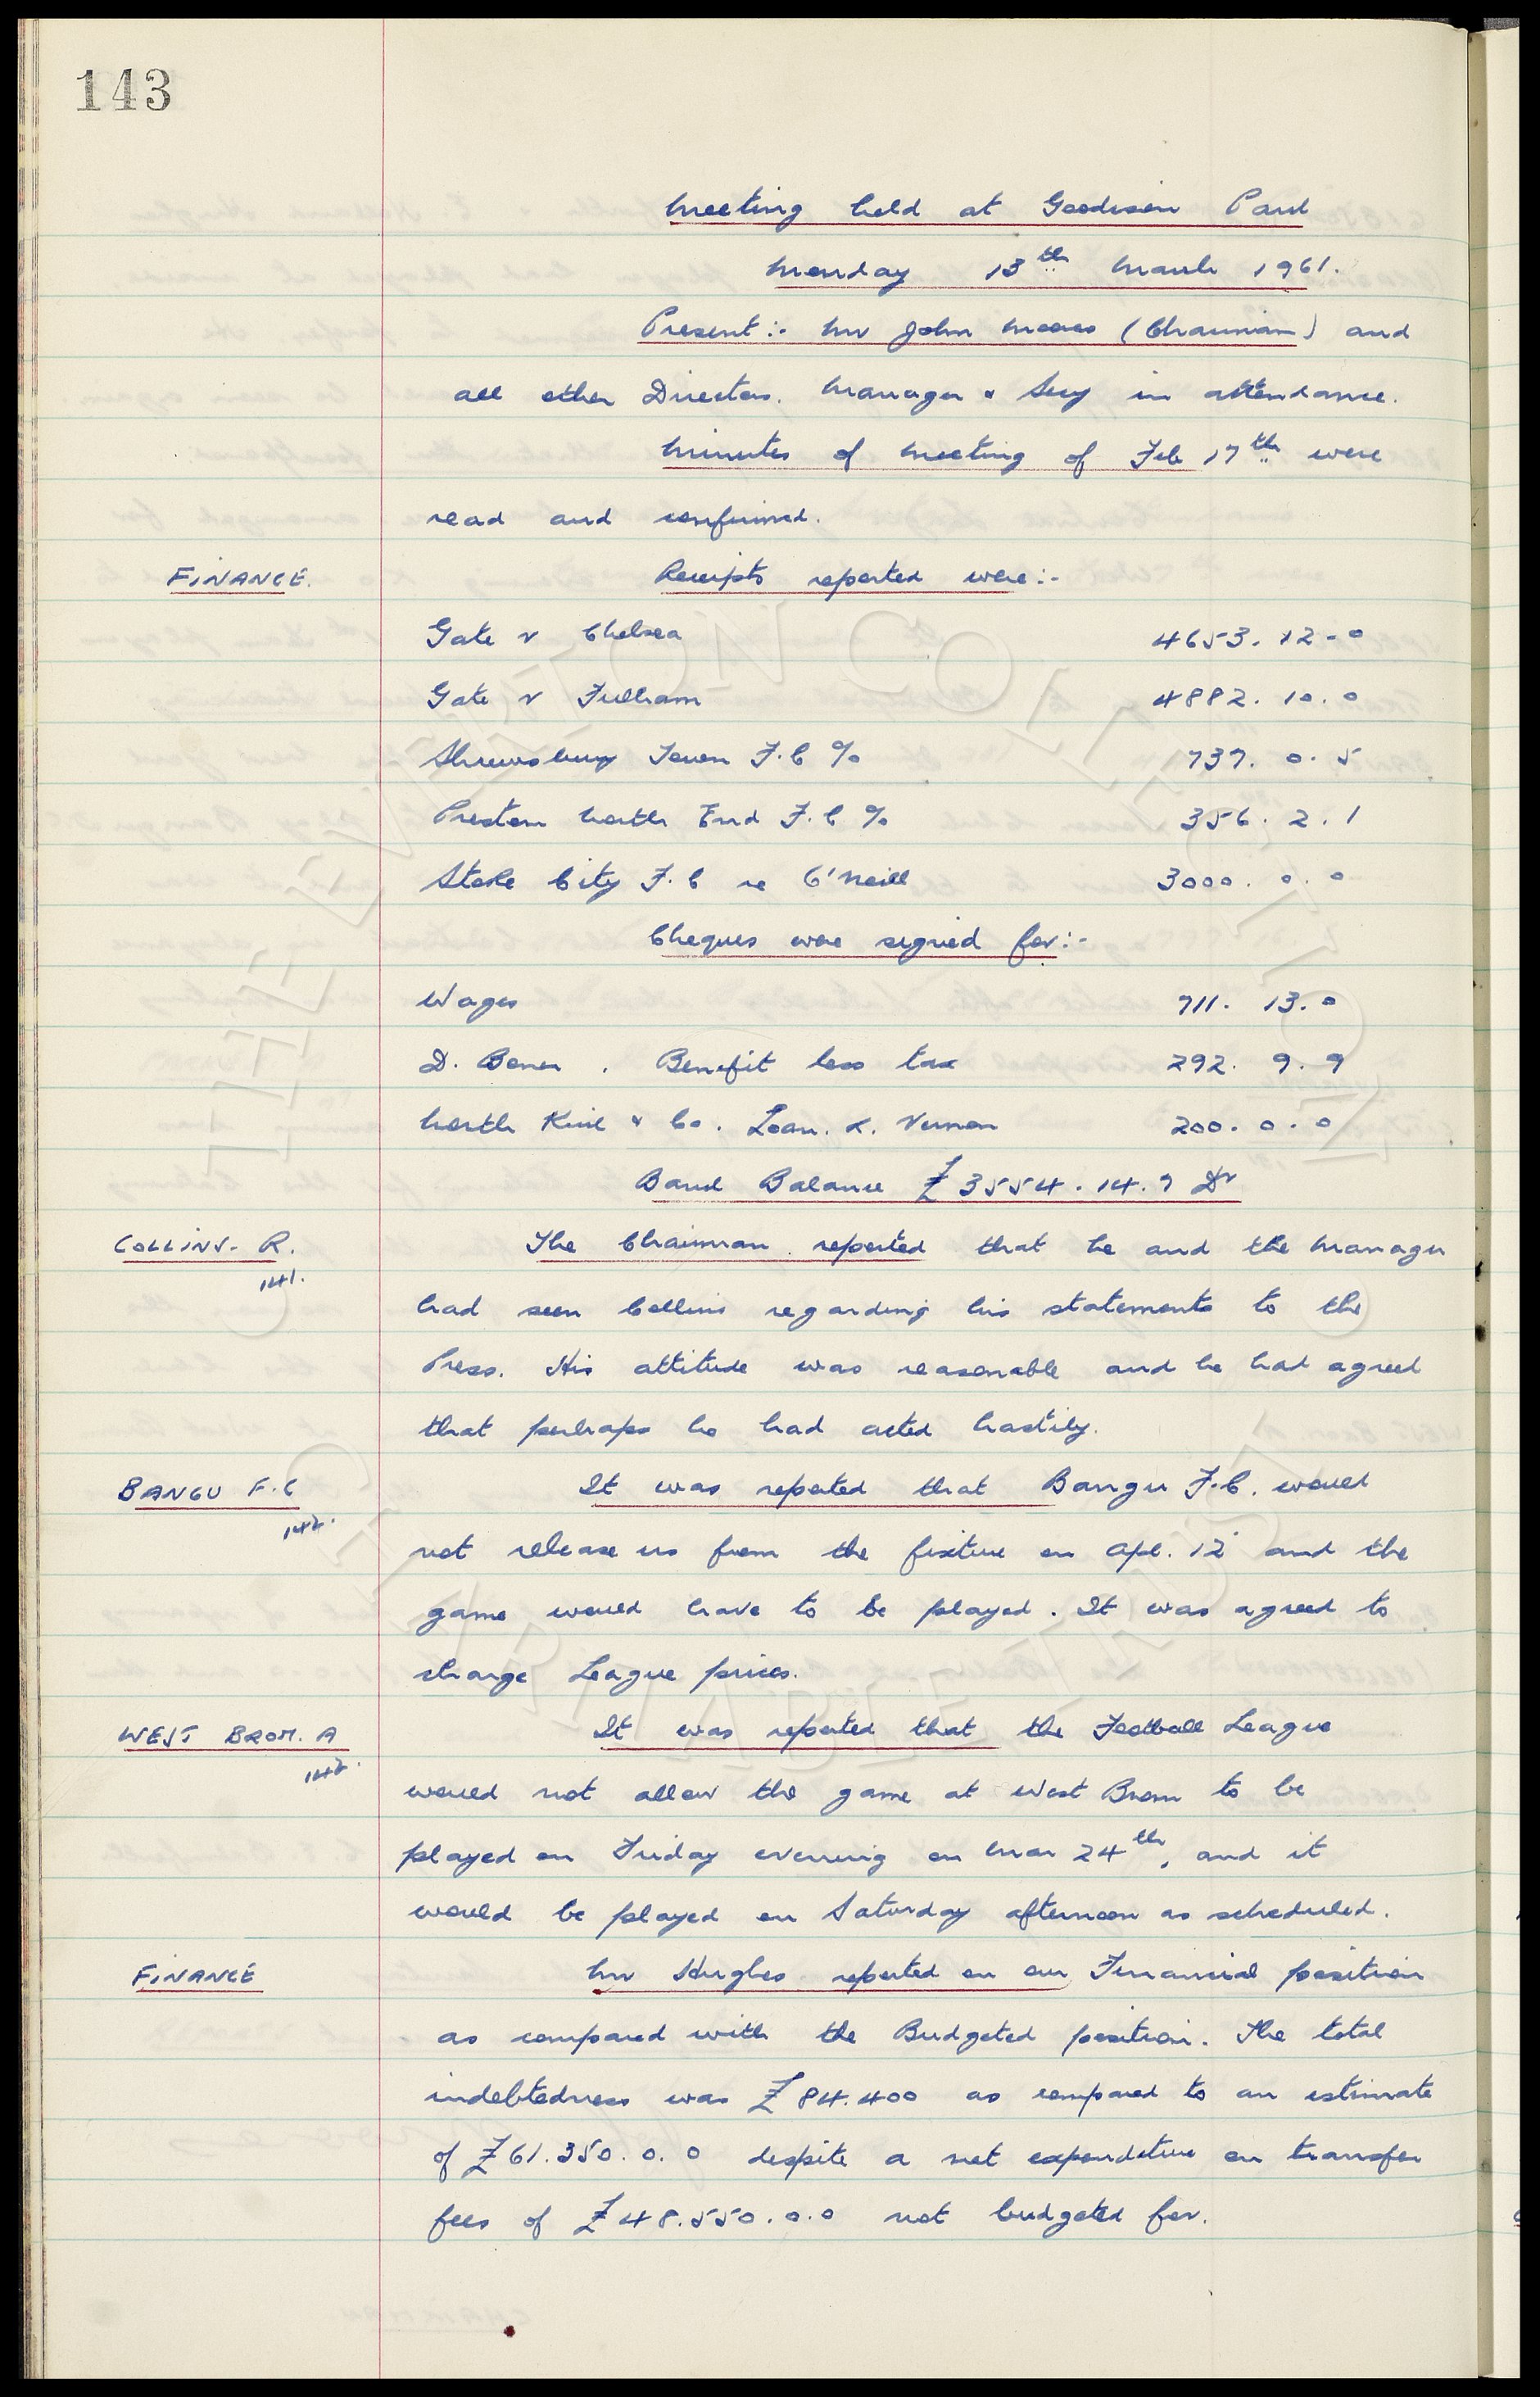 143
Meeting held at Goodison Park
Monday 13th March 1961.
Present :- Mr John Moores (Chairman) and
all other Directors. Manager & Secy in attendance.
Minutes of meeting of Feb 17th were
read and confirmed.
FINANCE. Receipts reported were :-
Gate v Chelsea 4653. 12 - 0
Gate v Fulham 4882. 10. 0
Shrewsbury Town F.C % 737. 0. 5
Preston North End F.C % 356. 2. 1
Stoke City F.C re O'Neill 3000. 0. 0
Cheques were signed for :-
Wages 711. 13. 0
D. Bener . Benefit less tax 292. 9. 9
North Kirk & Co. Loan. R. Vernon 200. 0. 0
Bank Balance £3554. 14. 7 Dr
COLLINS - R. The Chairman reported that he and the Manager
141.
had seen Collins regarding his statements to the
Press. His attitude was reasonable and he had agreed
that perhaps he had acted hastily.
BANGU F.C It was reported that Bangu F.C. would
142.
not release us from the fixture on Apl. 12 and the
game would have to be played. It was agreed to
charge League prices.
WEST BROM. A It was reported that the Football League
142.
would not allow the game at West Brom to be
played on Friday evening on Mar 24th, and it
would be played on Saturday afternoon as scheduled.
FINANCE Mr Hughes reported on our Financial position
as compared with the Budgeted position. The total
indebtedness was £84.400 as compared to an estimate
of £61.350. 0. 0 despite a net expenditure on transfer
fees of £48.550. 0. 0 not budgeted for.